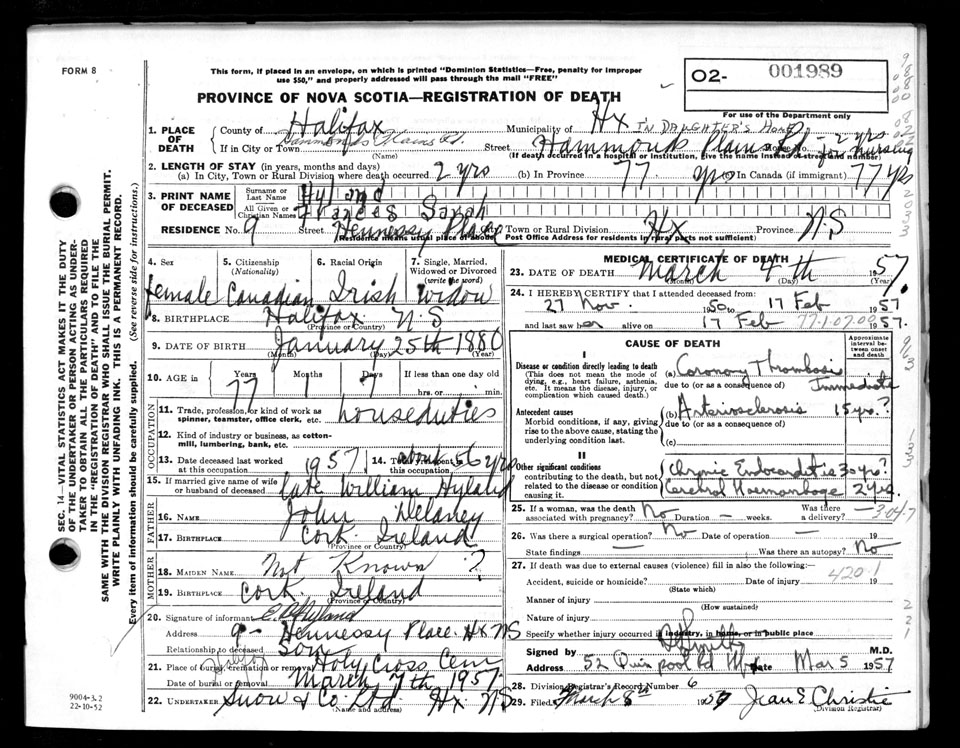 FORM 8
This form, if placed in an envelope, on which is printed "Dominion Statistics—Free, penalty for improper
use $50," and properly addressed will pass through the mail "FREE"
O2- 001989
PROVINCE OF NOVA SCOTIA—REGISTRATION OF DEATH
For use of Department only
1. PLACE OF DEATH
County of Halifax Municipality of Hx IN DAUGHTER'S HOME
If in City or Town Hammonds Plains Rd. Street Hammonds Plains Rd 2 yrs for nursing
(Name) (If death occurred in a hospital or institution, give the name instead of street and number)
2. LENGTH OF STAY (in years, months and days)
(a) In City, Town or Rural Division where death occurred 2 yrs (b) In Province 77 yrs (c) In Canada (if immigrant) 77 yrs
3. PRINT NAME OF DECEASED
Surname or Last Name Hyland
All Given or Christian Names Frances Sarah
RESIDENCE No. 9 Street Hennessy Place City, Town or Rural Division Hx Province N.S
Residence means usual place of abode. Post Office Address for residents in rural parts not sufficient)
SEC. 14—VITAL STATISTICS ACT MAKES IT THE DUTY
OF THE UNDERTAKER OR PERSON ACTING AS UNDER-
TAKER "TO OBTAIN ALL THE PARTICULARS REQUIRED
IN THE "REGISTRATION OF DEATH" AND TO FILE THE
SAME WITH THE DIVISION REGISTRAR WHO SHALL ISSUE THE BURIAL PERMIT.
WRITE PLAINLY WITH UNFADING INK. THIS IS A PERMANENT RECORD.
Every item of information should be carefully supplied. (See reverse side for instructions.)
4. Sex
5. Citizenship (Nationality)
6. Racial Origin
7. Single, Married, Widowed or Divorced (write the word)
female Canadian Irish Widow
8. BIRTHPLACE Halifax N.S
(Province or Country)
9. DATE OF BIRTH January 25th 1880
(Month) (Day) (Year)
10. AGE in Years 77 Months 1 Days 7 If less than one day old
hrs. or min.
OCCUPATION
11. Trade, profession, or kind of work as spinner, teamster, office clerk, etc. houseduties
12. Kind of industry or business, as cotton-mill, lumbering, bank, etc.
13. Date deceased last worked at this occupation 1957 14. Total years spent in this occupation about 56 yrs
15. If married give name of wife or husband of deceased late William Hyland
FATHER
16. NAME John Delaney
17. BIRTHPLACE Cork Ireland
(Province or Country)
MOTHER
18. MAIDEN NAME Not Known ?
19. BIRTHPLACE Cork Ireland
(Province or Country)
20. Signature of informant Hyland
Address 9 - Hennessy Place. Hx NS
Relationship to deceased Son
21. Place of burial, cremation or removal Holy Cross Cem
Date of burial or removal March 7th 1957
22. UNDERTAKER Snow & Co Ltd Hx. NS
(Name and address)
9004-3.2
22-10-52
MEDICAL CERTIFICATE OF DEATH
23. DATE OF DEATH March 4th 1957.
(Month) (Day) (Year)
24. I HEREBY CERTIFY that I attended deceased from:
27 Nov. 1950 to 17 Feb 1957
and last saw her alive on 17 Feb 1957.
77.1.07.00
CAUSE OF DEATH
Approximate interval between onset and death
I
Disease or condition directly leading to death
(This does not mean the mode of dying, e.g., heart failure, asthenia, etc. It means the disease, injury, or complication which caused death.)
(a) Coronary Thrombosis Immediate
due to (or as a consequence of)
Antecedent causes
Morbid conditions, if any, giving rise to the above cause, stating the underlying condition last.
(b) Arteriosclerosis 15 yrs.?
due to (or as a consequence of)
(c)
II
Other significant conditions
contributing to the death, but not related to the disease or condition causing it.
Chronic Endocarditis 30 yrs?
Cerebral Haemorrhage 2 yrs.
25. If a woman, was the death associated with pregnancy? No Duration — weeks. Was there a delivery? —
3-04-7
26. Was there a surgical operation? No Date of operation — 19
State findings — Was there an autopsy? No
27. If death was due to external causes (violence) fill in also the following:
420.1
Accident, suicide or homicide? Date of injury 19
(State which)
Manner of injury
(How sustained)
Nature of injury
Specify whether injury occurred in industry, in home, or in public place
Signed by M.D.
Address 52 Quinpool Rd Hfx Date Mar 5 1957
28. Division Registrar's Record Number 6
29. Filed March 8th 1957 Jean E Christie
(Division Registrar)